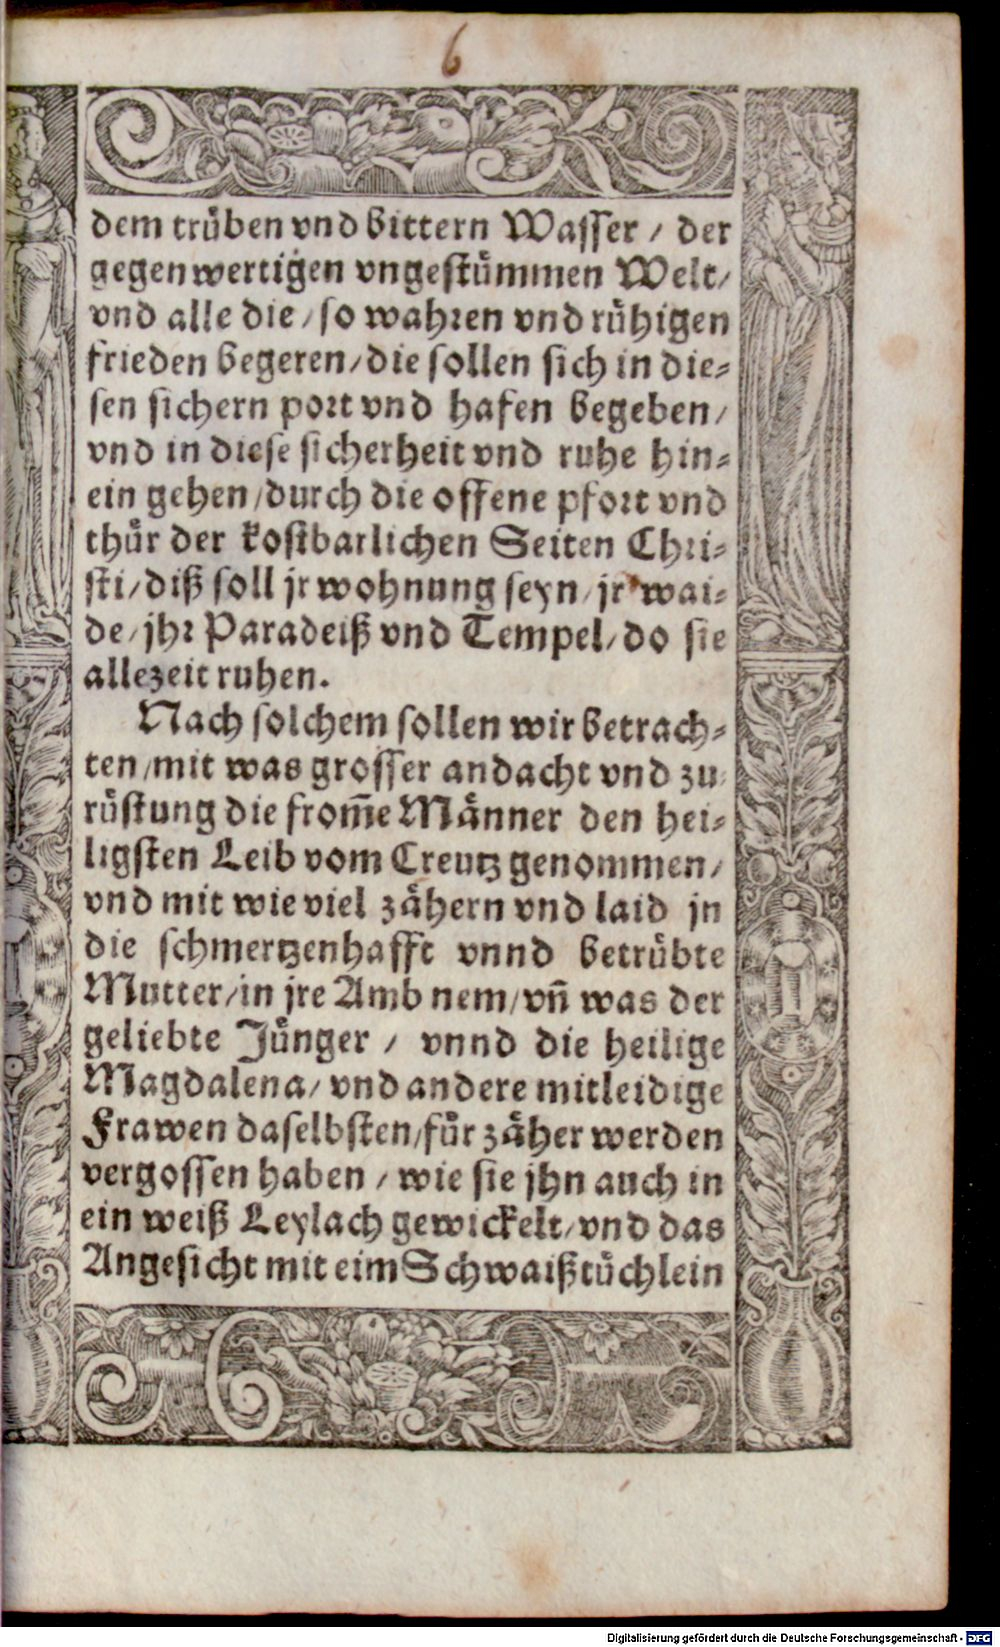 6
dem trüben vnd bittern Wasser / der
gegenwertigen vngestümmen Welt/
vnd alle die / so wahren vnd rühigen
frieden begeren/ die sollen sich in die-
sen sichern port vnd hafen begeben/
vnd in diese sicherheit vnd ruhe hin-
ein gehen/ durch die offene pfort vnd
thür der kostbarlichen Seiten Chri-
sti/ diß soll jr wohnung seyn/ jr wai-
de/ jhr Paradeiß vnd Tempel/ do sie
allezeit ruhen.
Nach solchem sollen wir betrach-
ten/ mit was grosser andacht vnd zu-
rüstung die from̃e Männer den hei-
ligsten Leib vom Creutz genommen/
vnd mit wie viel zähern vnd laid jn
die schmertzenhafft vnnd betrübte
Mutter/ in jre Amb nem/ vñ was der
geliebte Jünger / vnnd die heilige
Magdalena/ vnd andere mitleidige
Frawen daselbsten/ für zäher werden
vergossen haben / wie sie jhn auch in
ein weiß Leylach gewickelt/ vnd das
Angesicht mit eim Schwaißtüchlein
Digitalisierung gefördert durch die Deutsche Forschungsgemeinschaft - DFG